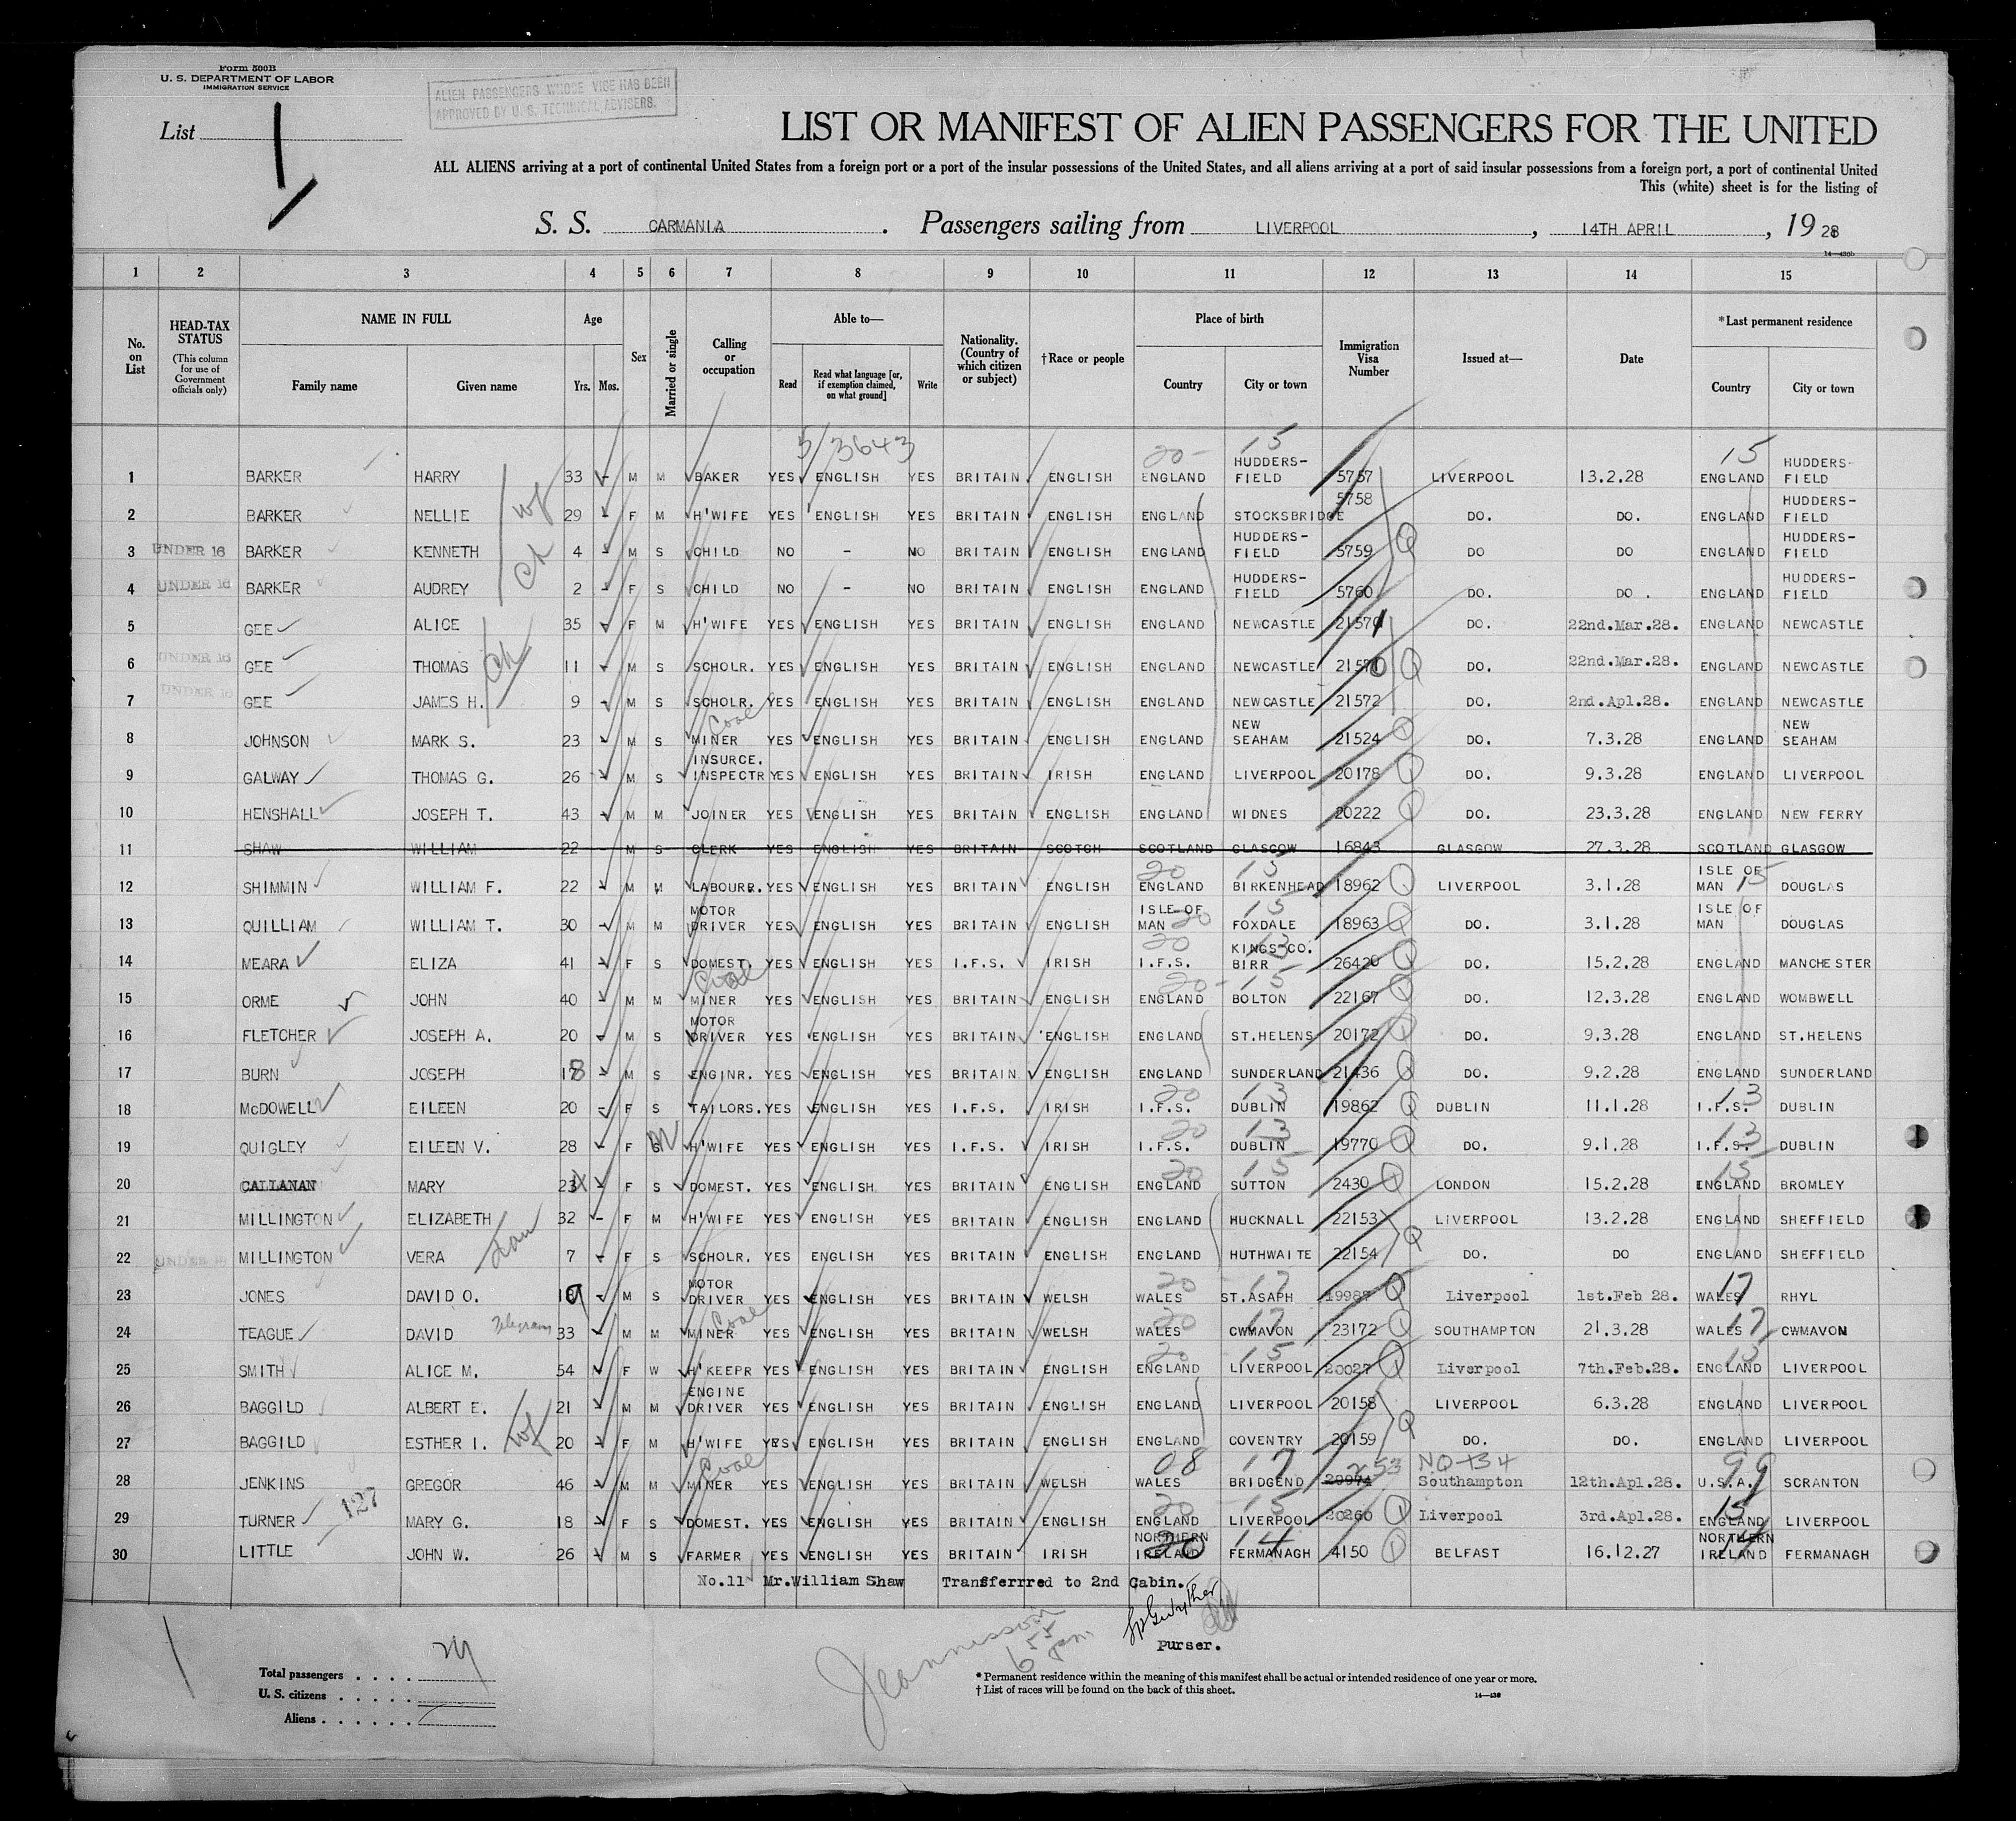 Form 500B
U. S. DEPARTMENT OF LABOR
IMMIGRATION SERVICE
ALIEN PASSENGERS WHOSE VISE HAS BEEN
APPROVED BY U. S. TECHNICAL ADVISERS.
List 1
LIST OR MANIFEST OF ALIEN PASSENGERS FOR THE UNITED
ALL ALIENS arriving at a port of continental United States from a foreign port or a port of the insular possessions of the United States, and all aliens arriving at a port of said insular possessions from a foreign port, a port of continental United
This (white) sheet is for the listing of
S. S. CARMANIA. Passengers sailing from LIVERPOOL, 14TH APRIL, 1928
14—430b
1 2 3 4 5 6 7 8 9 10 11 12 13 14 15
No. on List HEAD-TAX STATUS (This column for use of Government officials only) NAME IN FULL Family name Given name Age Yrs. Mos. Sex Married or single Calling or occupation Able to— Read Read what language [or, if exemption claimed, on what ground] Write Nationality. (Country of which citizen or subject) †Race or people Place of birth Country City or town Immigration Visa Number Issued at— Date *Last permanent residence Country City or town
5/3643 20- 15 15
1 BARKER HARRY 33 - M M BAKER YES ENGLISH YES BRITAIN ENGLISH ENGLAND HUDDERS-FIELD 5757 LIVERPOOL 13.2.28 ENGLAND HUDDERS-FIELD
2 BARKER NELLIE wf 29 - F M H'WIFE YES ENGLISH YES BRITAIN ENGLISH ENGLAND STOCKSBRIDGE 5758 DO. DO. ENGLAND HUDDERS-FIELD
3 UNDER 16 BARKER KENNETH ch 4 - M S CHILD NO - NO BRITAIN ENGLISH ENGLAND HUDDERS-FIELD 5759 DO DO ENGLAND HUDDERS-FIELD
4 UNDER 16 BARKER AUDREY 2 - F S CHILD NO - NO BRITAIN ENGLISH ENGLAND HUDDERS-FIELD 5760 DO. DO. ENGLAND HUDDERS-FIELD
5 GEE ALICE 35 - F M H'WIFE YES ENGLISH YES BRITAIN ENGLISH ENGLAND NEWCASTLE 21571 DO. 22nd.Mar.28. ENGLAND NEWCASTLE
6 UNDER 16 GEE THOMAS ch 11 - M S SCHOLR. YES ENGLISH YES BRITAIN ENGLISH ENGLAND NEWCASTLE 21570 DO. 22nd.Mar.28. ENGLAND NEWCASTLE
7 UNDER 16 GEE JAMES H. 9 - M S SCHOLR. YES ENGLISH YES BRITAIN ENGLISH ENGLAND NEWCASTLE 21572 DO. 2nd.Apl.28. ENGLAND NEWCASTLE
8 JOHNSON MARK S. 23 - M S Coal MINER YES ENGLISH YES BRITAIN ENGLISH ENGLAND NEW SEAHAM 21524 DO. 7.3.28 ENGLAND NEW SEAHAM
9 GALWAY THOMAS G. 26 - M S INSURCE. INSPECTR YES ENGLISH YES BRITAIN IRISH ENGLAND LIVERPOOL 20178 DO. 9.3.28 ENGLAND LIVERPOOL
10 HENSHALL JOSEPH T. 43 - M M JOINER YES ENGLISH YES BRITAIN ENGLISH ENGLAND WIDNES 20222 DO. 23.3.28 ENGLAND NEW FERRY
11 SHAW WILLIAM 22 - M S CLERK YES ENGLISH YES BRITAIN SCOTCH SCOTLAND GLASGOW 16843 GLASGOW 27.3.28 SCOTLAND GLASGOW
12 SHIMMIN WILLIAM F. 22 - M M LABOURR. YES ENGLISH YES BRITAIN ENGLISH 20 ENGLAND 15 BIRKENHEAD 18962 LIVERPOOL 3.1.28 ISLE OF MAN 15 DOUGLAS
13 QUILLIAM WILLIAM T. 30 - M M MOTOR DRIVER YES ENGLISH YES BRITAIN ENGLISH ISLE OF MAN 20 15 FOXDALE 18963 DO. 3.1.28 ISLE OF MAN DOUGLAS
14 MEARA ELIZA 41 - F S DOMEST. YES ENGLISH YES I.F.S. IRISH 20 I.F.S. 13 KINGS-CO. BIRR 26420 DO. 15.2.28 ENGLAND MANCHESTER
15 ORME JOHN 40 - M M Coal MINER YES ENGLISH YES BRITAIN ENGLISH 20- ENGLAND 15 BOLTON 22167 DO. 12.3.28 ENGLAND WOMBWELL
16 FLETCHER JOSEPH A. 20 - M S MOTOR DRIVER YES ENGLISH YES BRITAIN ENGLISH ENGLAND ST.HELENS 20172 DO. 9.3.28 ENGLAND ST.HELENS
17 BURN JOSEPH 18 - M S ENGINR. YES ENGLISH YES BRITAIN ENGLISH ENGLAND SUNDERLAND 21436 DO. 9.2.28 ENGLAND SUNDERLAND
18 McDOWELL EILEEN 20 - F S TAILORS. YES ENGLISH YES I.F.S. IRISH 20 I.F.S. 13 DUBLIN 19862 DUBLIN 11.1.28 I.F.S. 13 DUBLIN
19 QUIGLEY EILEEN V. 28 - F M H'WIFE YES ENGLISH YES I.F.S. IRISH 20 I.F.S. 13 DUBLIN 19770 DO. 9.1.28 I.F.S. 13 DUBLIN
20 CALLANAN MARY 23 - F S DOMEST. YES ENGLISH YES BRITAIN ENGLISH 20 ENGLAND 15 SUTTON 2430 LONDON 15.2.28 15 ENGLAND BROMLEY
21 MILLINGTON ELIZABETH 32 - F M H'WIFE YES ENGLISH YES BRITAIN ENGLISH ENGLAND HUCKNALL 22153 LIVERPOOL 13.2.28 ENGLAND SHEFFIELD
22 UNDER 16 MILLINGTON VERA 7 - F S SCHOLR. YES ENGLISH YES BRITAIN ENGLISH ENGLAND HUTHWAITE 22154 DO. DO ENGLAND SHEFFIELD
23 JONES DAVID O. 19 - M S MOTOR DRIVER YES ENGLISH YES BRITAIN WELSH 20 WALES 17 ST.ASAPH Liverpool 1st.Feb 28. WALES 17 RHYL
24 TEAGUE DAVID Telegram 33 - M M Coal MINER YES ENGLISH YES BRITAIN WELSH 20 WALES 17 CWMAVON 23172 SOUTHAMPTON 21.3.28 WALES 17 CWMAVON
25 SMITH ALICE M. 54 - F W H'KEEPR YES ENGLISH YES BRITAIN ENGLISH 20 ENGLAND 15 LIVERPOOL 20027 Liverpool 7th.Feb.28. 15 ENGLAND LIVERPOOL
26 BAGGILD ALBERT E. 21 - M M ENGINE DRIVER YES ENGLISH YES BRITAIN ENGLISH ENGLAND LIVERPOOL 20158 LIVERPOOL 6.3.28 ENGLAND LIVERPOOL
27 BAGGILD ESTHER I. wf 20 - F M H'WIFE YES ENGLISH YES BRITAIN ENGLISH ENGLAND COVENTRY 20159 DO. DO. ENGLAND LIVERPOOL
28 JENKINS GREGOR 46 - M M Coal MINER YES ENGLISH YES BRITAIN WELSH 08 WALES 17 BRIDGEND 29974 253 NQ-134 Southampton 12th.Apl.28. U.S.A. 99 SCRANTON
29 TURNER 127 MARY G. 18 - F S DOMEST. YES ENGLISH YES BRITAIN ENGLISH 20 ENGLAND 15 LIVERPOOL 20260 Liverpool 3rd.Apl.28. 15 ENGLAND LIVERPOOL
30 LITTLE JOHN W. 26 - M S FARMER YES ENGLISH YES BRITAIN IRISH NORTHERN IRELAND 20 14 FERMANAGH 4150 BELFAST 16.12.27 NORTHERN IRELAND 14 FERMANAGH
No.11 Mr.William Shaw Transferrred to 2nd Cabin.
Purser.
Total passengers
U. S. citizens
Aliens
* Permanent residence within the meaning of this manifest shall be actual or intended residence of one year or more.
† List of races will be found on the back of this sheet.
14—430